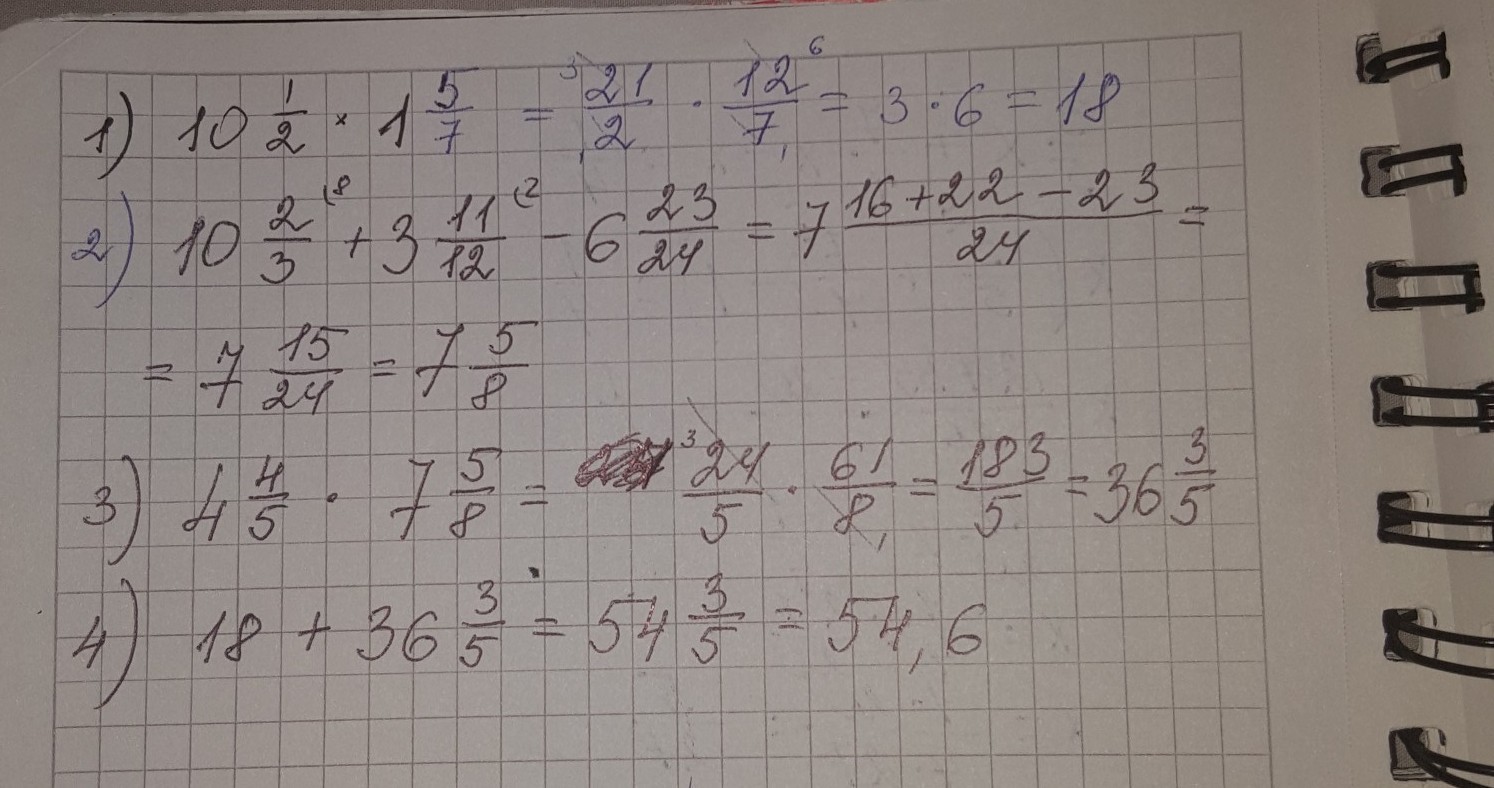 1) 10 1/2 × 1 5/7 = ³21/2₁ · 12⁶/7₁ = 3 · 6 = 18
2) 10 2⁽⁸/3 + 3 11⁽²/12 − 6 23/24 = 7 (16 + 22 − 23)/24 =
= 7 15/24 = 7 5/8
3) 4 4/5 · 7 5/8 = ³24/5 · 61/8₁ = 183/5 = 36 3/5
4) 18 + 36 3/5 = 54 3/5 = 54,6